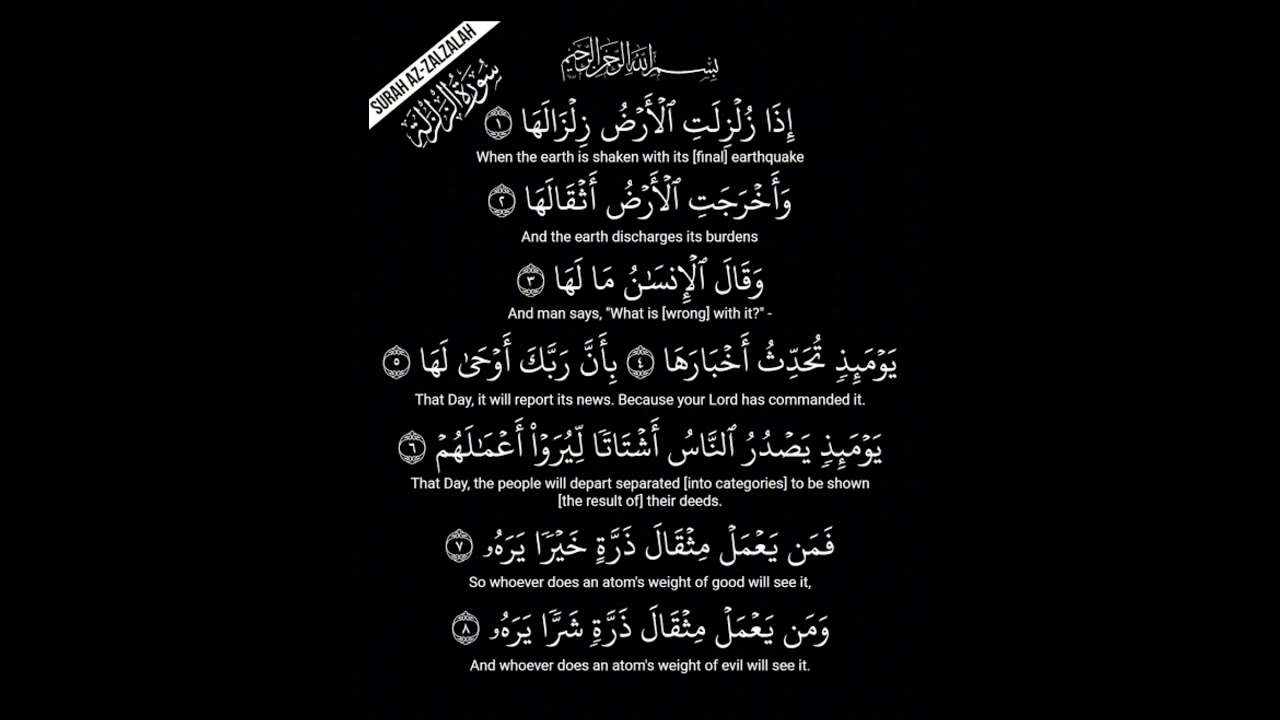 SURAH AZ-ZALZALAH
سُورَةُ الزَّلْزَلَة
بِسْمِ اللَّهِ الرَّحْمَٰنِ الرَّحِيمِ
إِذَا زُلْزِلَتِ ٱلْأَرْضُ زِلْزَالَهَا ١
When the earth is shaken with its [final] earthquake
وَأَخْرَجَتِ ٱلْأَرْضُ أَثْقَالَهَا ٢
And the earth discharges its burdens
وَقَالَ ٱلْإِنسَٰنُ مَا لَهَا ٣
And man says, "What is [wrong] with it?" -
يَوْمَئِذٍ تُحَدِّثُ أَخْبَارَهَا ٤ بِأَنَّ رَبَّكَ أَوْحَىٰ لَهَا ٥
That Day, it will report its news. Because your Lord has commanded it.
يَوْمَئِذٍ يَصْدُرُ ٱلنَّاسُ أَشْتَاتًا لِّيُرَوْا۟ أَعْمَٰلَهُمْ ٦
That Day, the people will depart separated [into categories] to be shown
[the result of] their deeds.
فَمَن يَعْمَلْ مِثْقَالَ ذَرَّةٍ خَيْرًا يَرَهُۥ ٧
So whoever does an atom's weight of good will see it,
وَمَن يَعْمَلْ مِثْقَالَ ذَرَّةٍ شَرًّا يَرَهُۥ ٨
And whoever does an atom's weight of evil will see it.